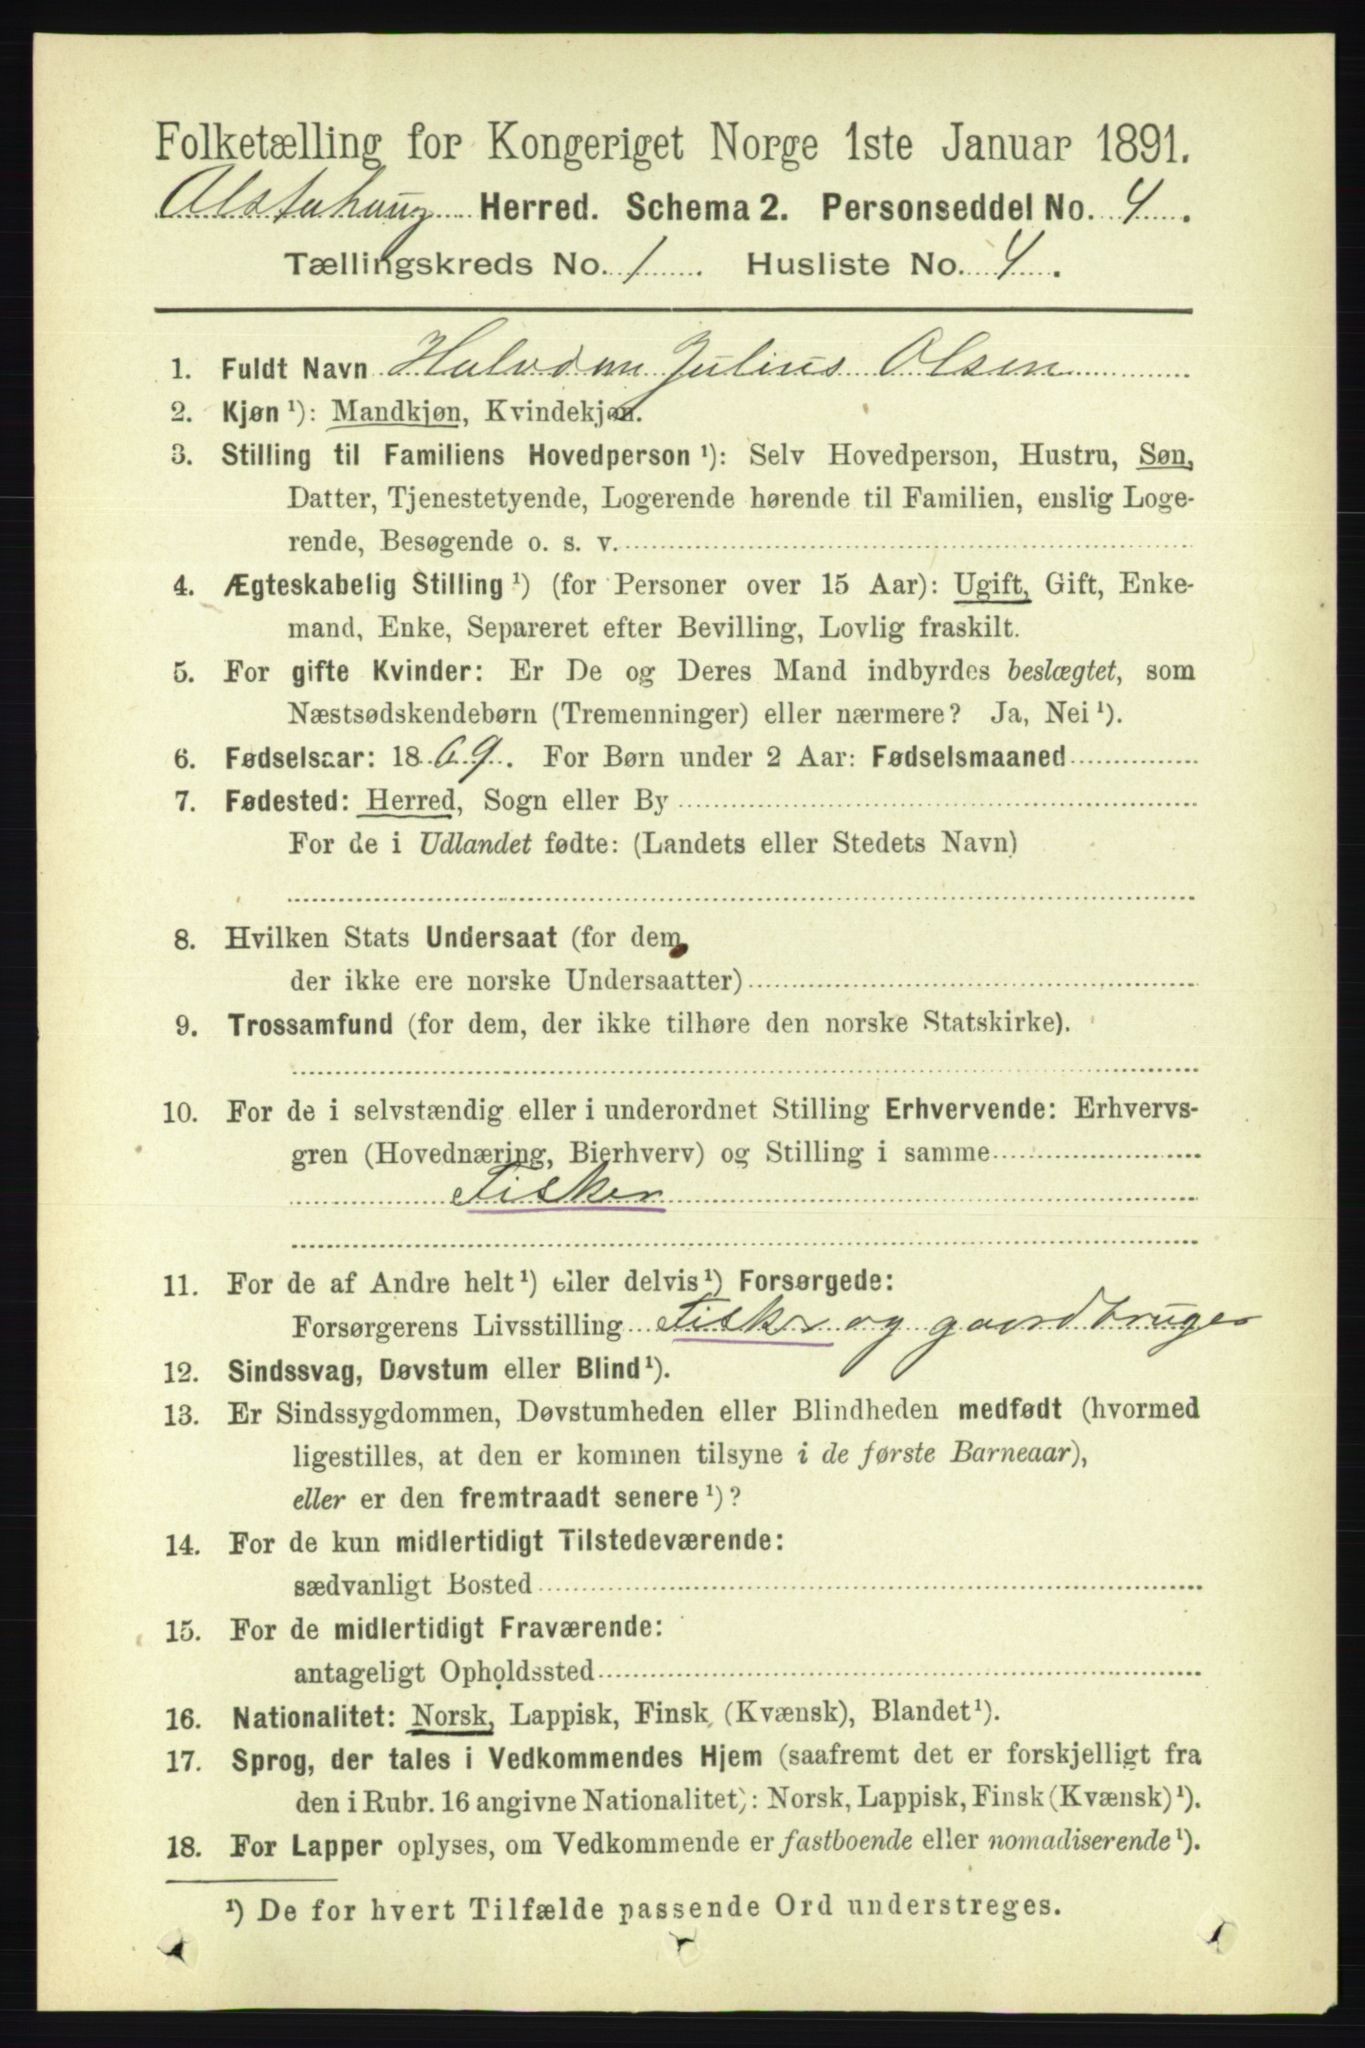 Folketælling for Kongeriget Norge 1ste Januar 1891.
Alstahaug Herred. Schema 2. Personseddel No. 4.
Tællingskreds No. 1. Husliste No. 4.
1. Fuldt Navn Halvdan Julius Olsen
2. Kjøn ¹): Mandkjøn, Kvindekjøn.
3. Stilling til Familiens Hovedperson ¹): Selv Hovedperson, Hustru, Søn,
Datter, Tjenestetyende, Logerende hørende til Familien, enslig Loge-
rende, Besøgende o. s. v.
4. Ægteskabelig Stilling ¹) (for Personer over 15 Aar): Ugift, Gift, Enke-
mand, Enke, Separeret efter Bevilling, Lovlig fraskilt.
5. For gifte Kvinder: Er De og Deres Mand indbyrdes beslægtet, som
Næstsødskendebørn (Tremenninger) eller nærmere? Ja, Nei ¹).
6. Fødselsaar: 1869. For Børn under 2 Aar: Fødselsmaaned
7. Fødested: Herred, Sogn eller By
For de i Udlandet fødte: (Landets eller Stedets Navn)
8. Hvilken Stats Undersaat (for dem,
der ikke ere norske Undersaatter)
9. Trossamfund (for dem, der ikke tilhøre den norske Statskirke).
10. For de i selvstændig eller i underordnet Stilling Erhvervende: Erhvervs-
gren (Hovednæring, Bierhverv) og Stilling i samme
Fisker
11. For de af Andre helt ¹) eller delvis ¹) Forsørgede:
Forsørgerens Livsstilling Fisker og gaardbruger
12. Sindssvag, Døvstum eller Blind ¹).
13. Er Sindssygdommen, Døvstumheden eller Blindheden medfødt (hvormed
ligestilles, at den er kommen tilsyne i de første Barneaar),
eller er den fremtraadt senere ¹)?
14. For de kun midlertidigt Tilstedeværende:
sædvanligt Bosted
15. For de midlertidigt Fraværende:
antageligt Opholdssted
16. Nationalitet: Norsk, Lappisk, Finsk (Kvænsk), Blandet ¹).
17. Sprog, der tales i Vedkommendes Hjem (saafremt det er forskjelligt fra
den i Rubr. 16 angivne Nationalitet): Norsk, Lappisk, Finsk (Kvænsk) ¹).
18. For Lapper oplyses, om Vedkommende er fastboende eller nomadiserende ¹).
¹) De for hvert Tilfælde passende Ord understreges.